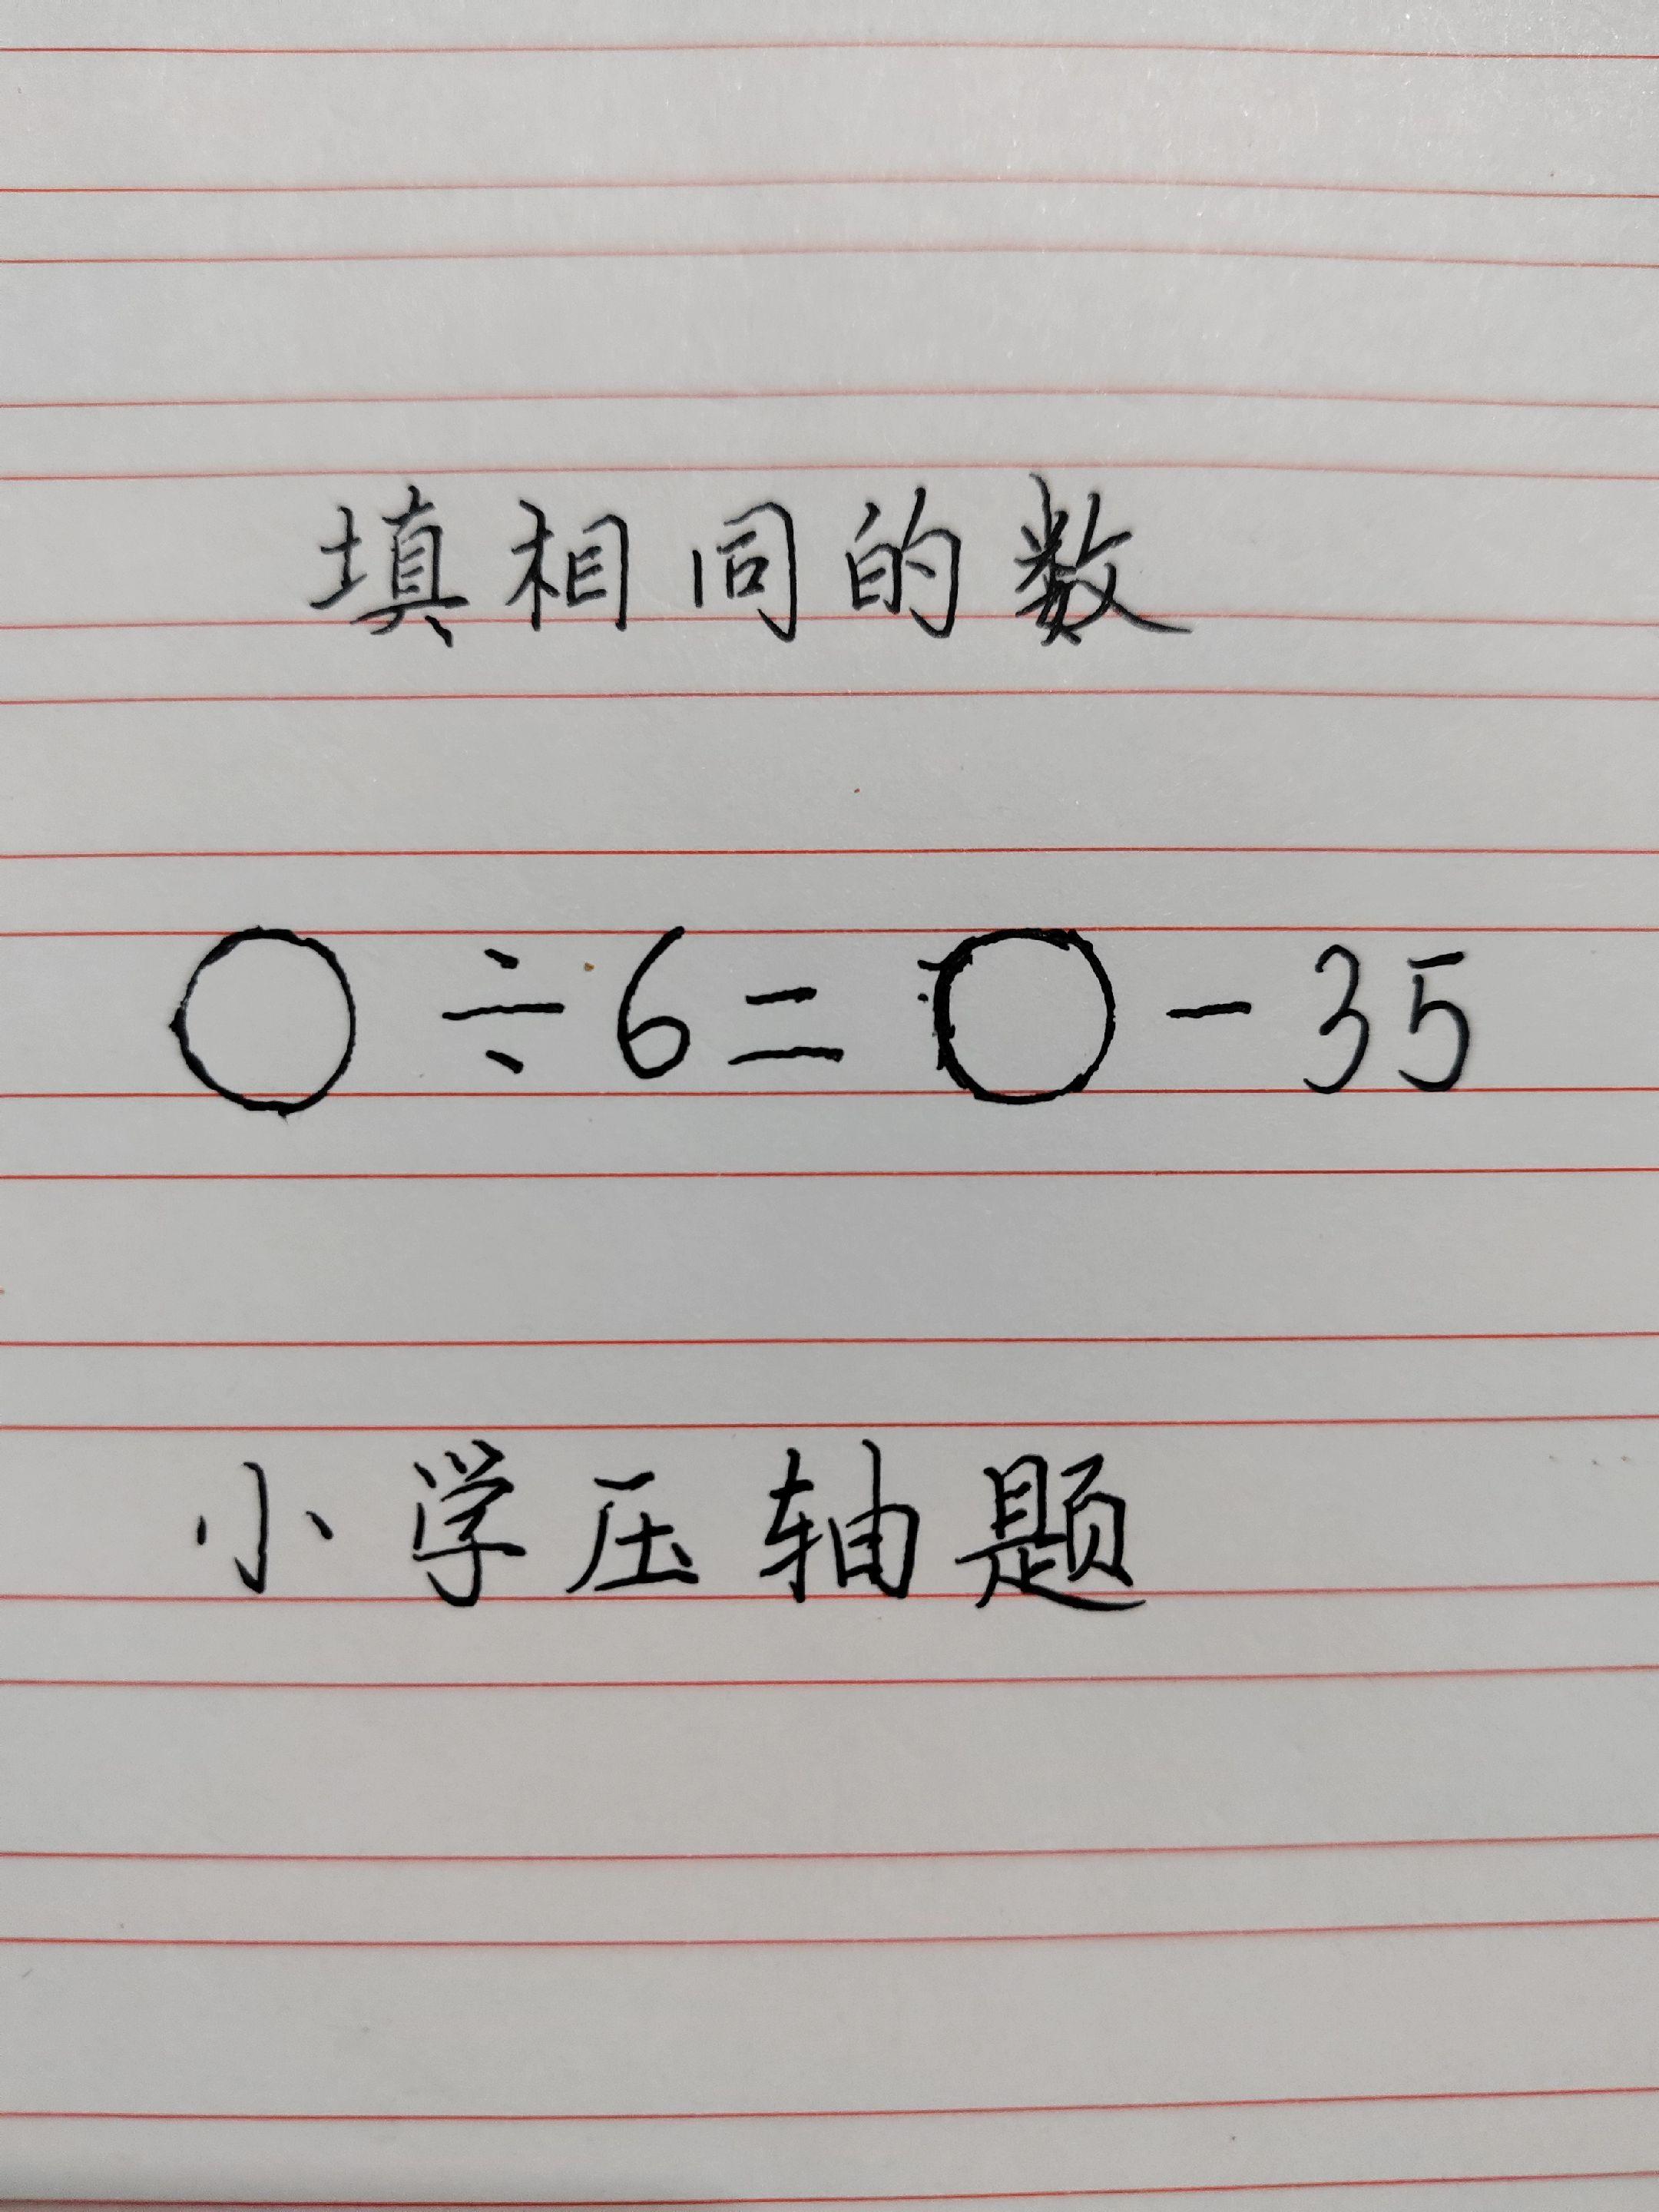 填相同的数
○÷6=○-35
小学压轴题